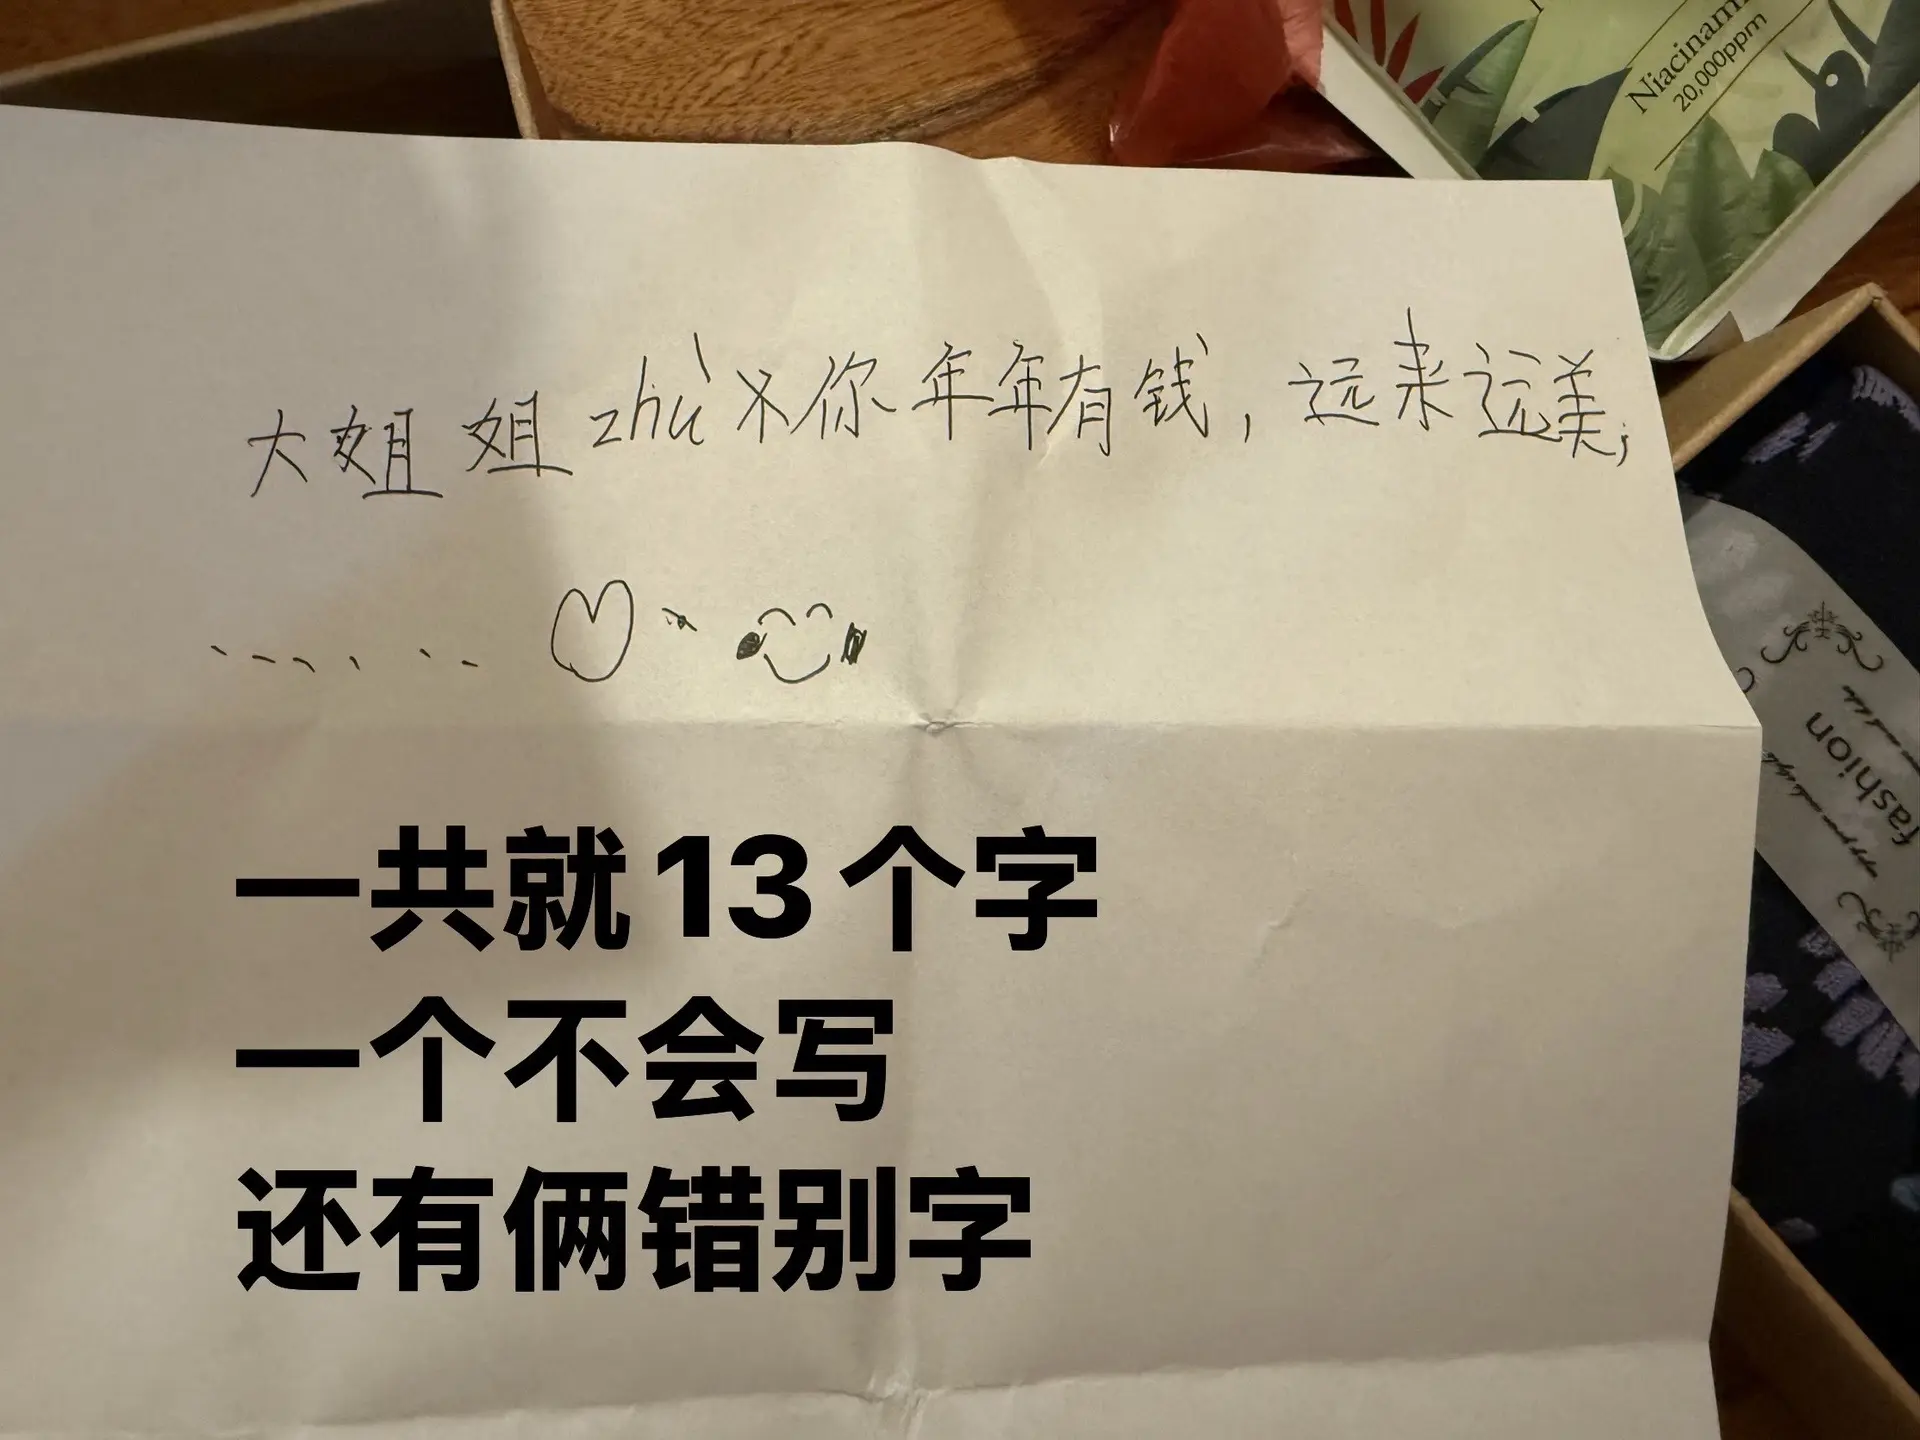 Niacinam
20,000ppm
大姐姐 zhù 你年年有钱，远来远美，
......
fashion
一共就13个字
一个不会写
还有俩错别字